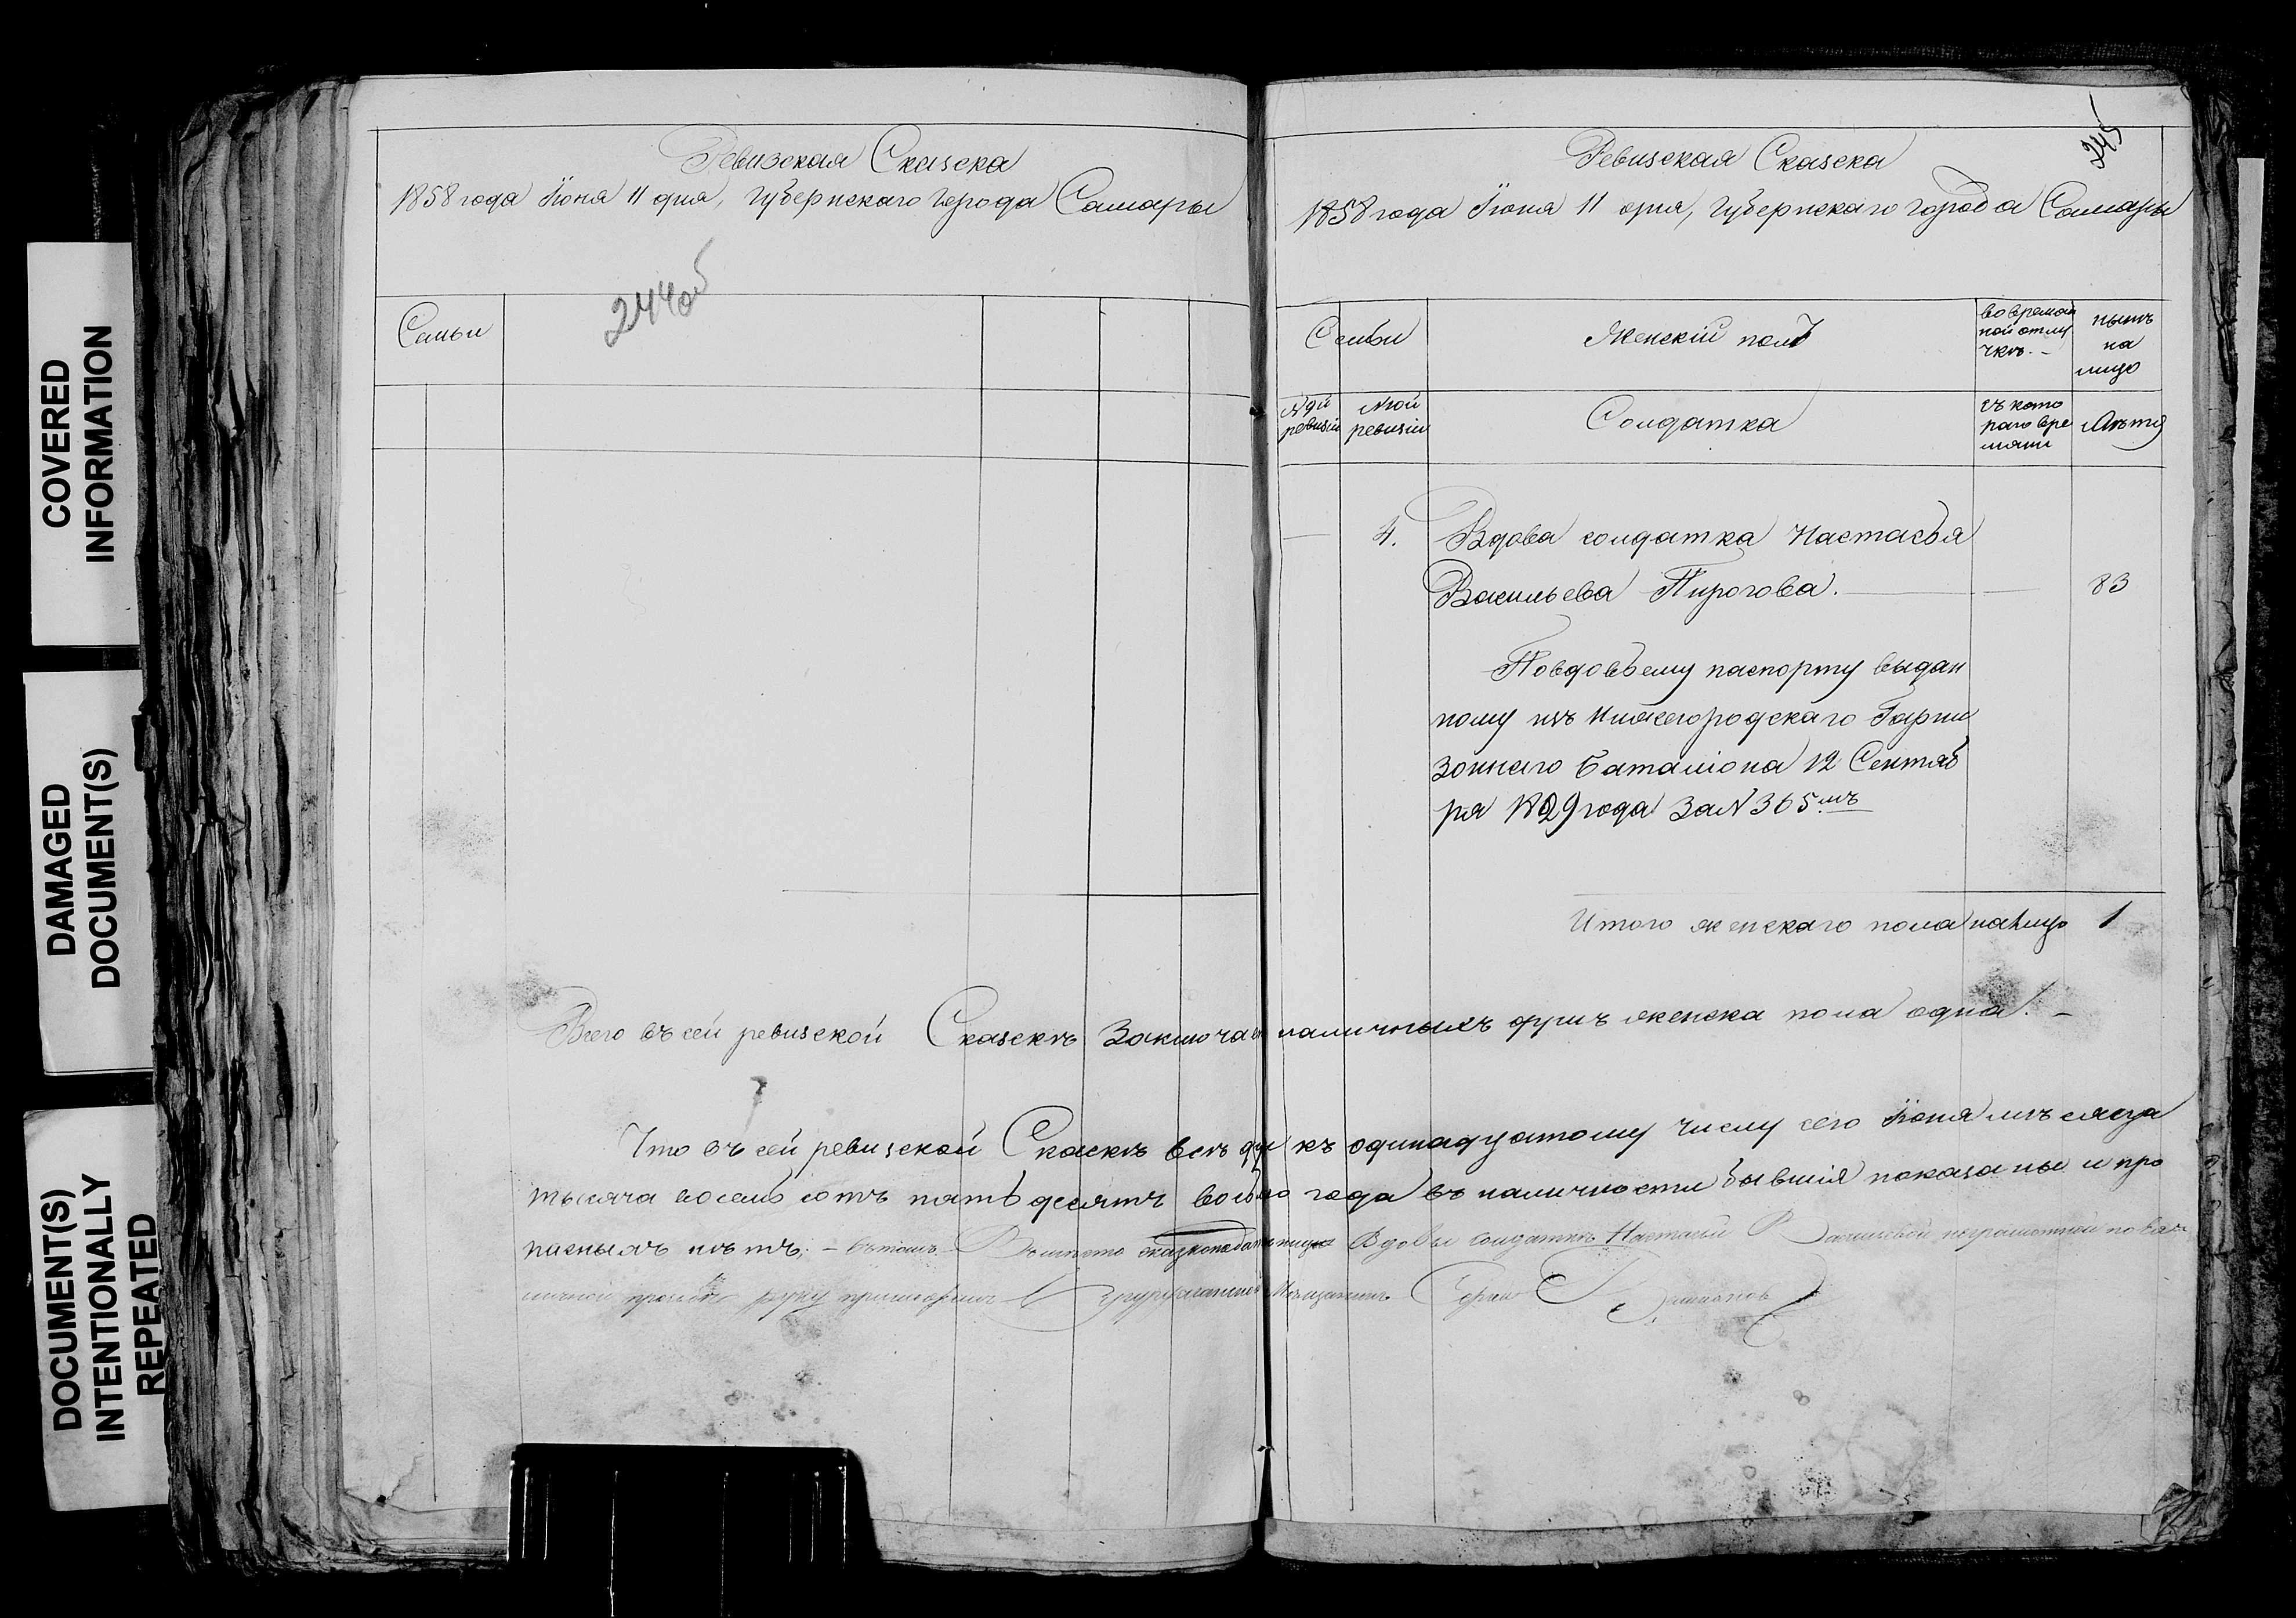 COVERED
INFORMATION
DAMAGED
DOCUMENT(S)
DOCUMENT(S)
INTENTIONALLY
REPEATED
Ревизская Сказска
1858 года Іюня 11 дня, Губернскаго города Самары
244об
Семьи
245
Ревизская Сказска
1858 года Іюня 11 дня, Губернскаго города Самары
Семьи
Женскій полъ
во времен
ной отлу
чкѣ. –
нынѣ
на
лицо
№ 9й
ревизіи
№ 10й
ревизіи
Солдатка
съ кото
раго вре
мяни
Лѣта
4. Вдова солдатка Настасья
Васильева Пирогова. 83
По вдовьему паспорту выдан
ному изъ Нижегородскаго Гарни
зоннаго Баталіона 12 Сентяб
ря 1829 года за № 365мъ
Итого женскаго пола на лицо 1
Всего въ сей ревизской Сказскѣ Заключая наличныхъ душъ женска пола одна. –
Что въ сей ревизской Скаскѣ всѣ ду къ одинадцатому числу сего Іюня мѣсяца
тысяча восемь сотъ пятьдесятъ восьмо года въ наличности бывшія показаны и про
писныхъ нѣтъ. – въ томъ Вместо сказкоподательницы Вдовы солдатки Настасьи Васильевой неграмотной по ея
личной прозьбе руку приложилъ Мещанинъ